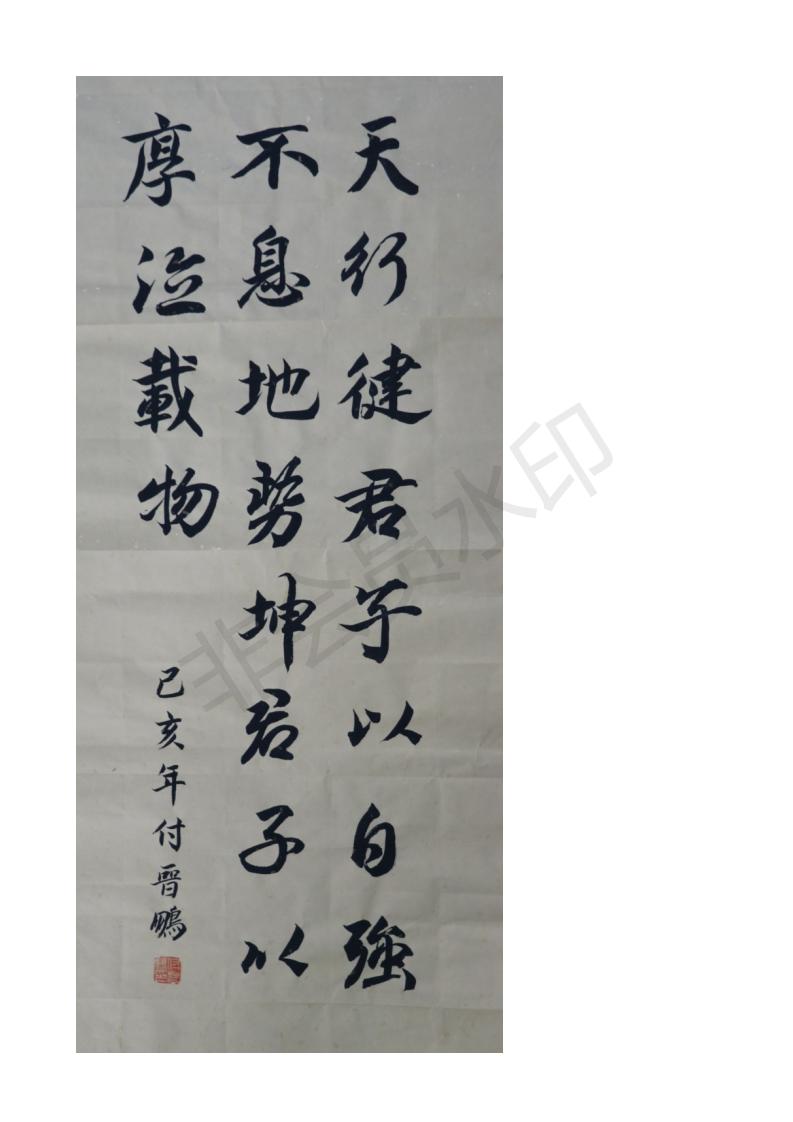 天行健君子以自強
不息地勢坤君子以
厚德載物
己亥年付晉鵬
非会员水印